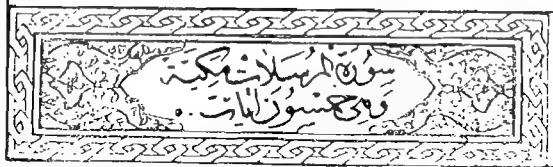 سُورَةُ المُرْسَلَاتِ مَكِيَّة
وَهِيَ خَمْسُونَ آيَات